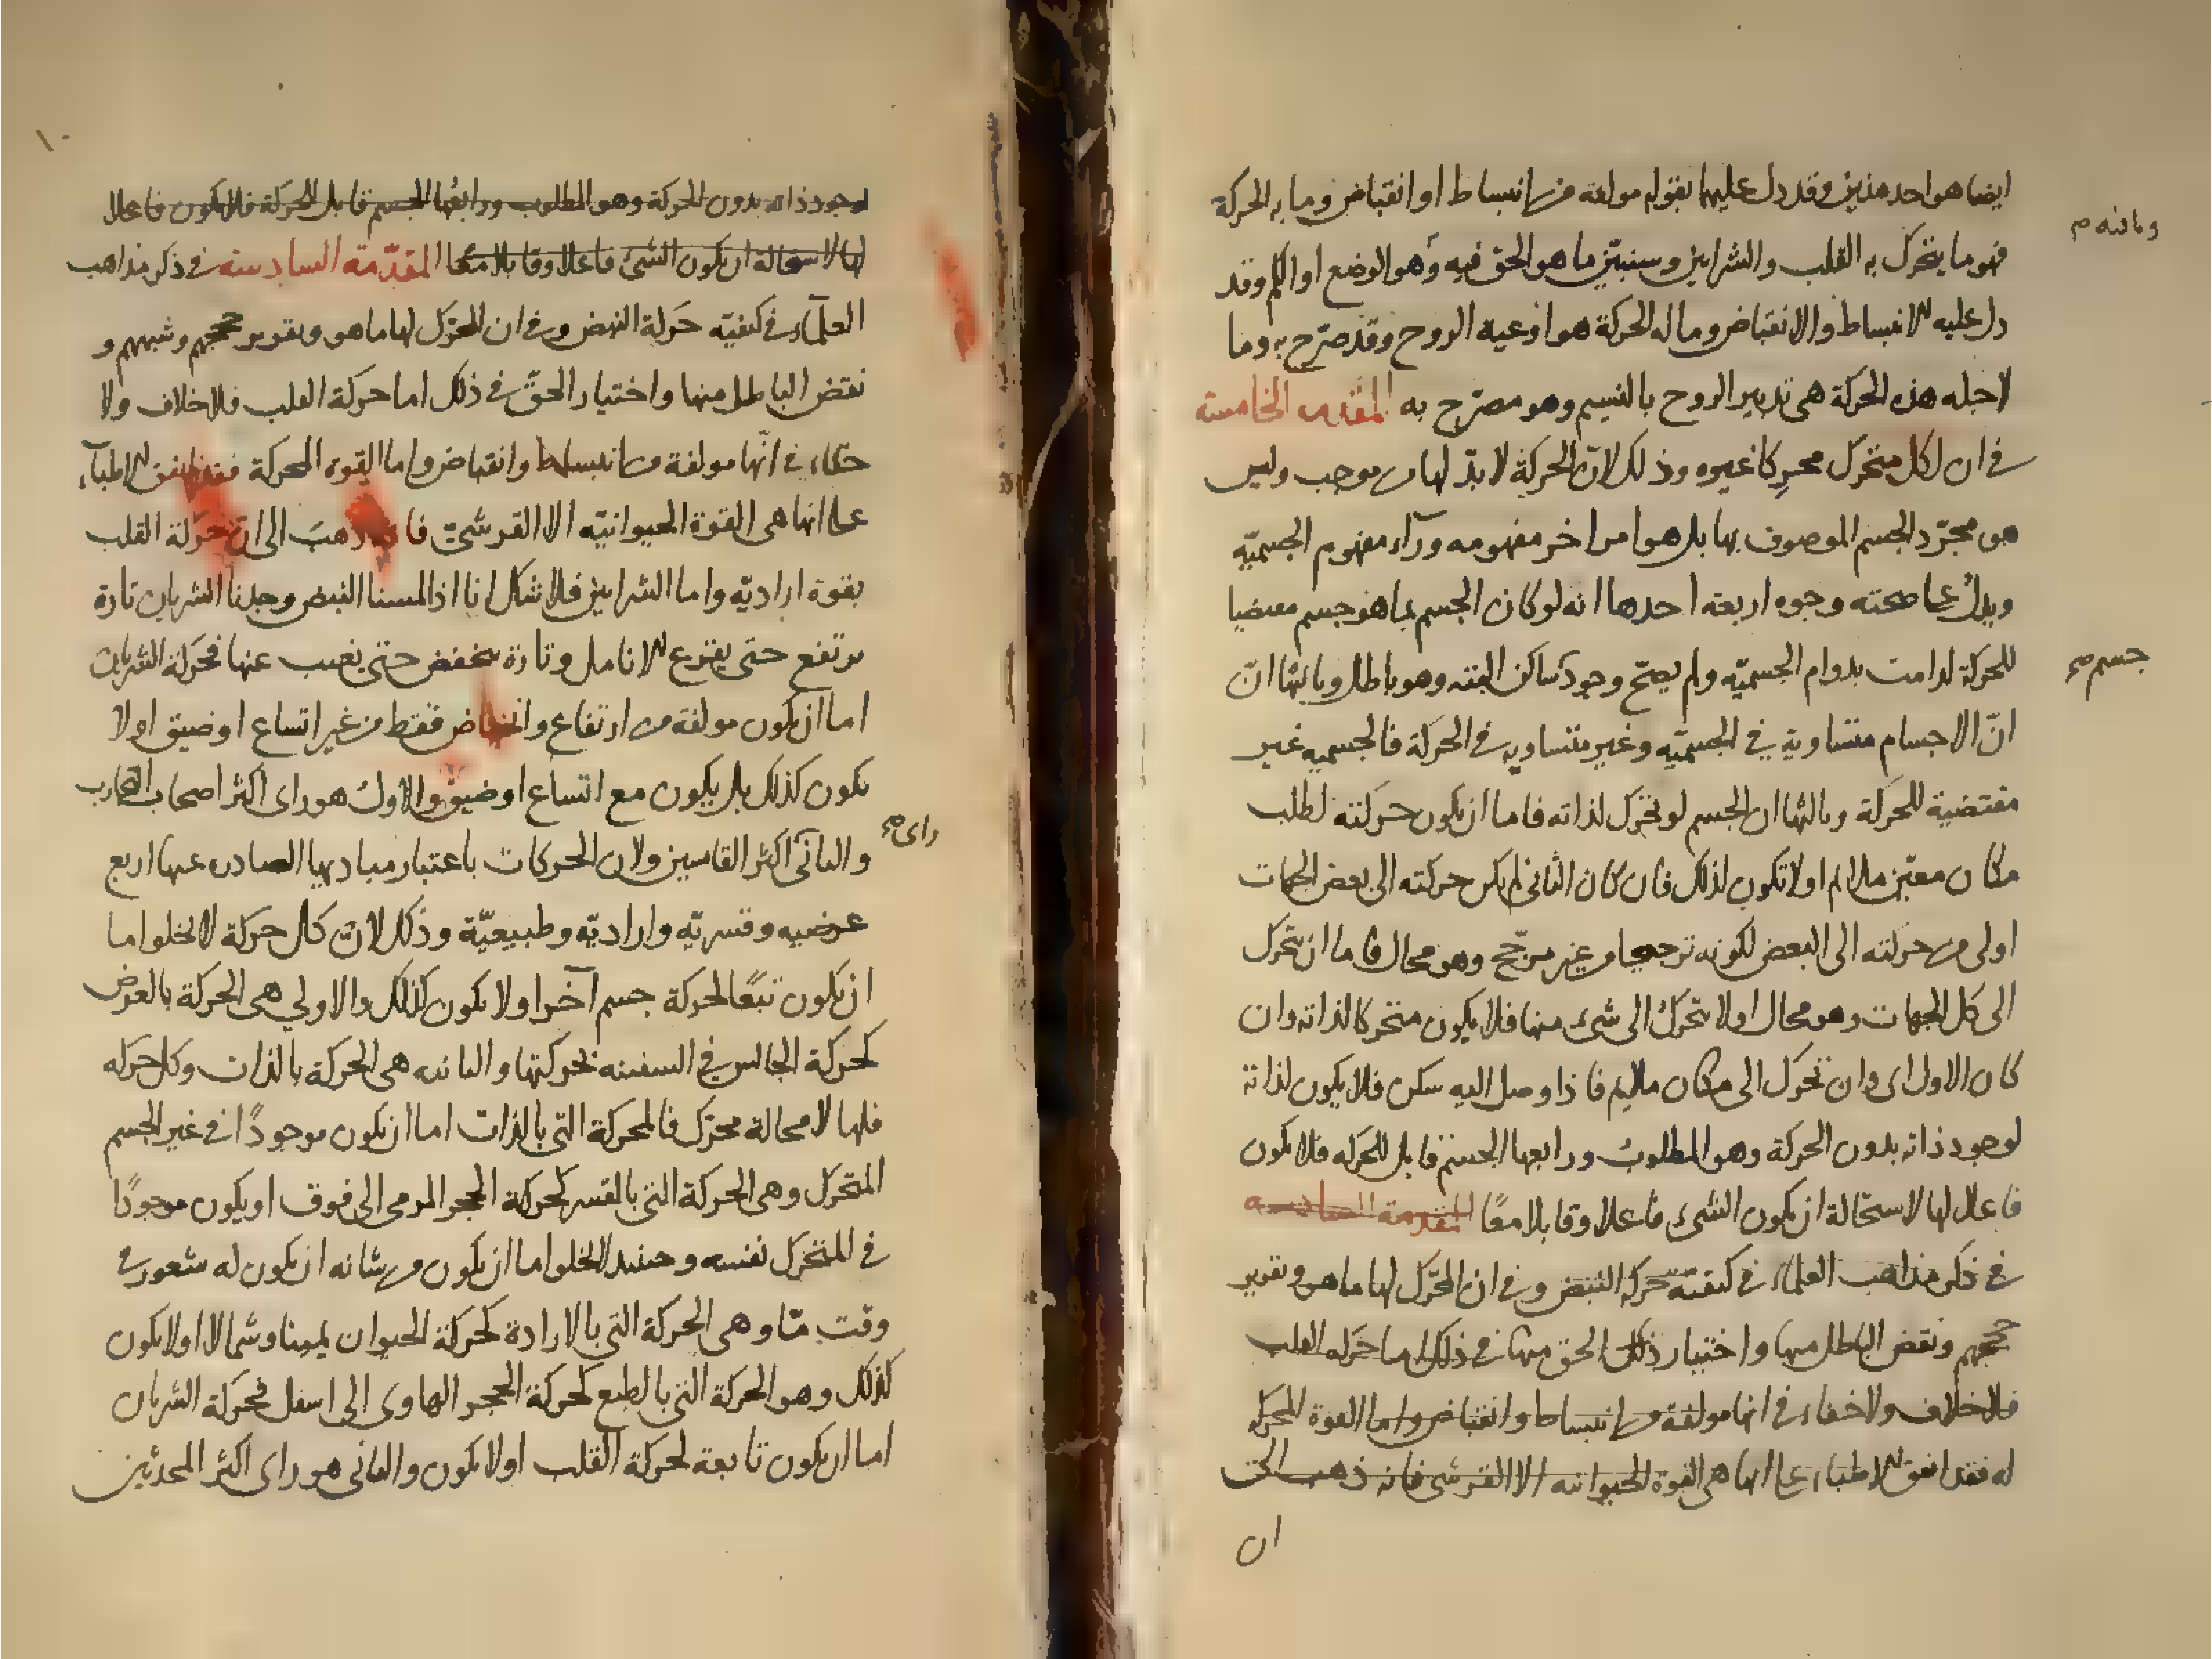 ايضا هو احد هذين وقد دل عليها بقوله مولفة من انبساط او انقباض وما به الحركة
وما فيه
فهو ما يتحرك به القلب والشرايين وسنبيّن ما هو الحق فيه وهو الوضع او الكم وقد
دل عليه الانبساط والانقباض وما له الحركة هو اوعية الروح وقد صرّح به وما
لاجله هذه الحركة هي تدبير الروح بالنسيم وهو مصرّح به المقدمه الخامسة
في ان لكل متحرك محرِكا غيره وذلك لانّ الحركة لا بدّ لها من موجب وليس
هو مجرّد الجسم الموصوف بها بل هو امر اخر مفهومه ورآء مفهوم الجسميّه
ويدلُ على صحته وجوه اربعة احدها انه لو كان الجسم بما هو جسم مقتضيا
للحركة لدامت بدوام الجسميّه ولم يصحّ وجود ساكن البته وهو باطل وثانيها انّ
جسم صح
انّ الاجسام متساوية في الجسميّه وغير متساويه في الحركة فالجسميه غير
مقتضية للحركة وثالثها ان الجسم لو تحرك لذاته فاما ان يكون حركته لطلب
مكان معيّن ملايم او لا تكون لذلك فان كان الثاني لم يكن حركته الى بعض الجهات
اولى من حركته الى البعض لكونه ترجيحا من غير مرجّح وهو محال فاما ان يتحرك
الى كل الجهات وهو محال اولا يتحركُ الى شئ منها فلا يكون متحركا لذاته وان
كان الاول اى وان تحرك الى مكان ملايم فاذا وصل اليه سكن فلا يكون لذاته
لوجود ذاته بدون الحركة وهو المطلوبُ ورابعها الجسم قابل للحركه فلا يكون
فاعلا لها لاستحالة ان يكون الشئ فاعلا وقابلا معًا المقدمة السادسه
في ذكر مذاهب العلماء في كيفيّة حركة النبض وفي ان المحّرك لها ما هو وتقرير
حججهم ونقض الباطل منها واختيار ذلك الحق منها في ذلك اما حركه القلب
فلا خلاف ولا خفاء في انها مولفة من انبساط وانقباض واما القوة المحركة
له فقد اتفق الاطباء على انها هي القوة الحيوانيه الا القرشي فانه ذهب الى
ان
١٠
لوجود ذاته بدون الحركة وهو المطلوب ورابعُها الجسم قابل الحركة فلا يكون فاعلا
لها لاستحالة ان يكون الشئ فاعلا وقابلا معًا المقدّمة السادسة في ذكر مذاهب
العلمآء في كيفيّه حركة النبض وفي ان المحرّك لها ما هو وتقرير حججهم وشبههم و
نقض الباطل منها واختيار الحقّ في ذلك اما حركة القلب فلا خلاف ولا
خفاء في انّها مولفة من انبساط وانقباض واما القوة المحركة فقد اتفق الاطبآء
على انها هي القوة الحيوانيّه الا القرشيّ فانه ذهبَ الى ان حركة القلب
بقوة اراديّه واما الشرايين فلا شك انا اذا لمسنا النبض وجدنا الشريان تارة
يرتفع حتى يقرع الانامل وتارة ينخفض حتى يغيب عنها فحركة الشريان
اما ان يكون مولفة من ارتفاع وانخفاض فقط من غير اتساع او ضيق او لا
يكون كذلك بل يكون مع اتساع او ضيق والاولُ هو راى اكثر اصحاب التجارب
راى صح
والثاني اكثر القاسين ولان الحركات باعتبار مباديها الصادره عنها اربع
عرضيه وقسريّه واراديّه وطبيعيّة وذلك لان كل حركة لا يخلو اما
ان يكون تبعًا لحركة جسم آخر او لا يكون كذلك والاولي هي الحركة بالعرض
كحركة الجالس في السفينه بحركتها والثانيه هي الحركة بالذات وكل حركه
فلها لا محالة محرّك فالمحركة التي بالذات اما ان يكون موجودًا في غير الجسم
المتحرك وهي الحركة التي بالقسر كحركة الحجر المرمى الى فوق او يكون موجودًا
في المتحرك نفسه وحينئذ لا يخلو اما ان يكون من شانه ان يكون له شعور في
وقت مّا وهي الحركة التي بالارادة كحركة الحيوان يمينا وشمالا او لا يكون
كذلك وهو الحركة التي بالطبع كحركة الحجر الهاوى الى اسفل فحركة الشريان
اما ان يكون تابعة لحركة القلب او لا يكون والثاني هو راى اكثر المحدثين